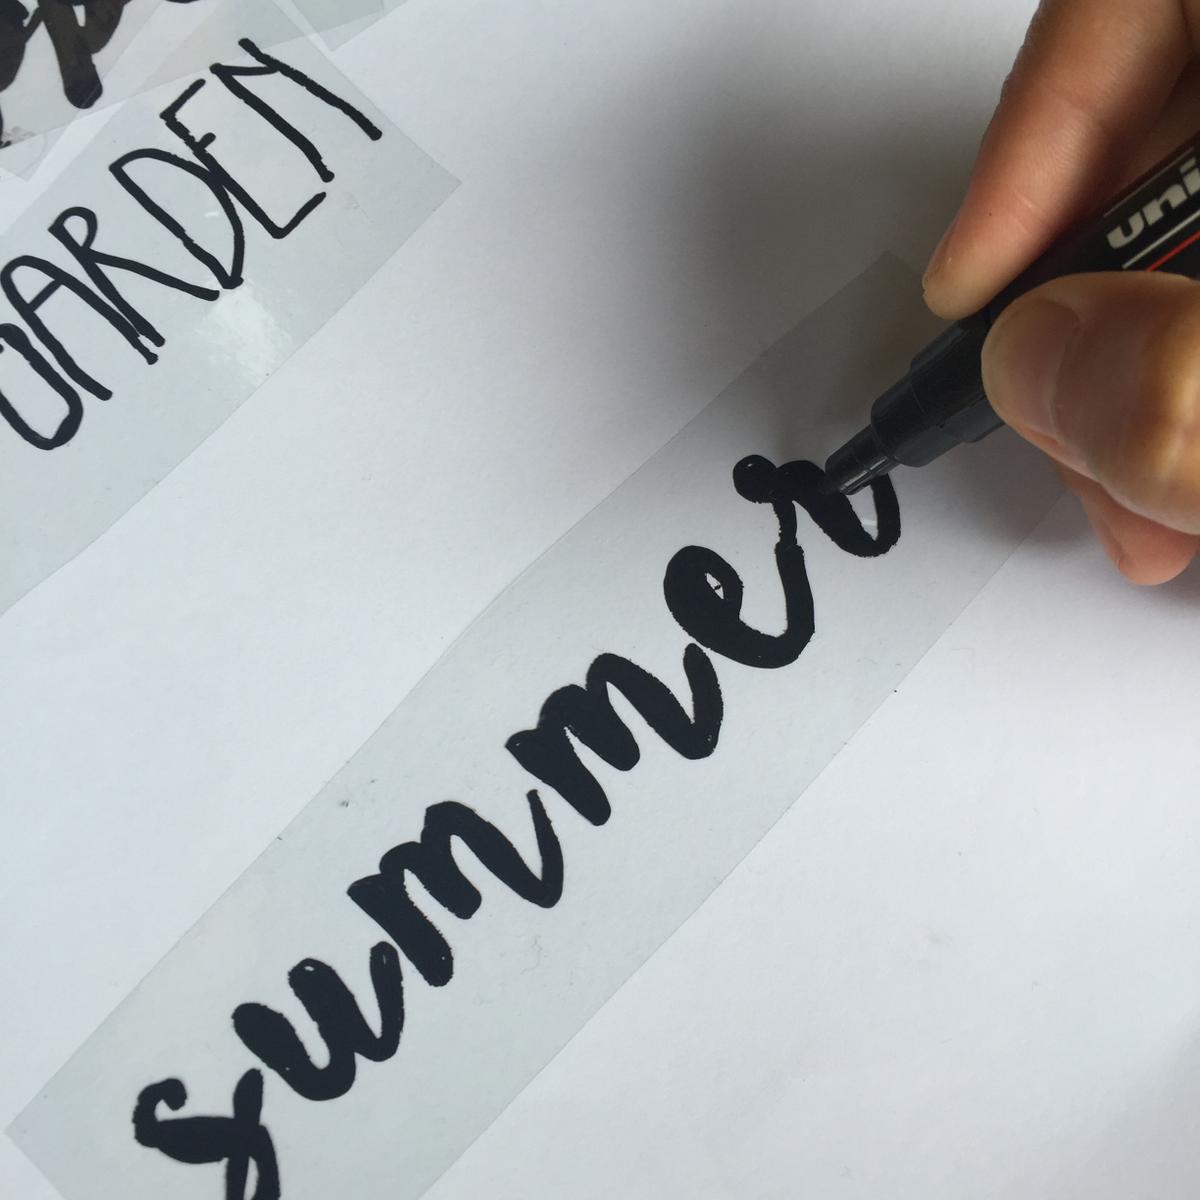 GARDEN
summer
uni